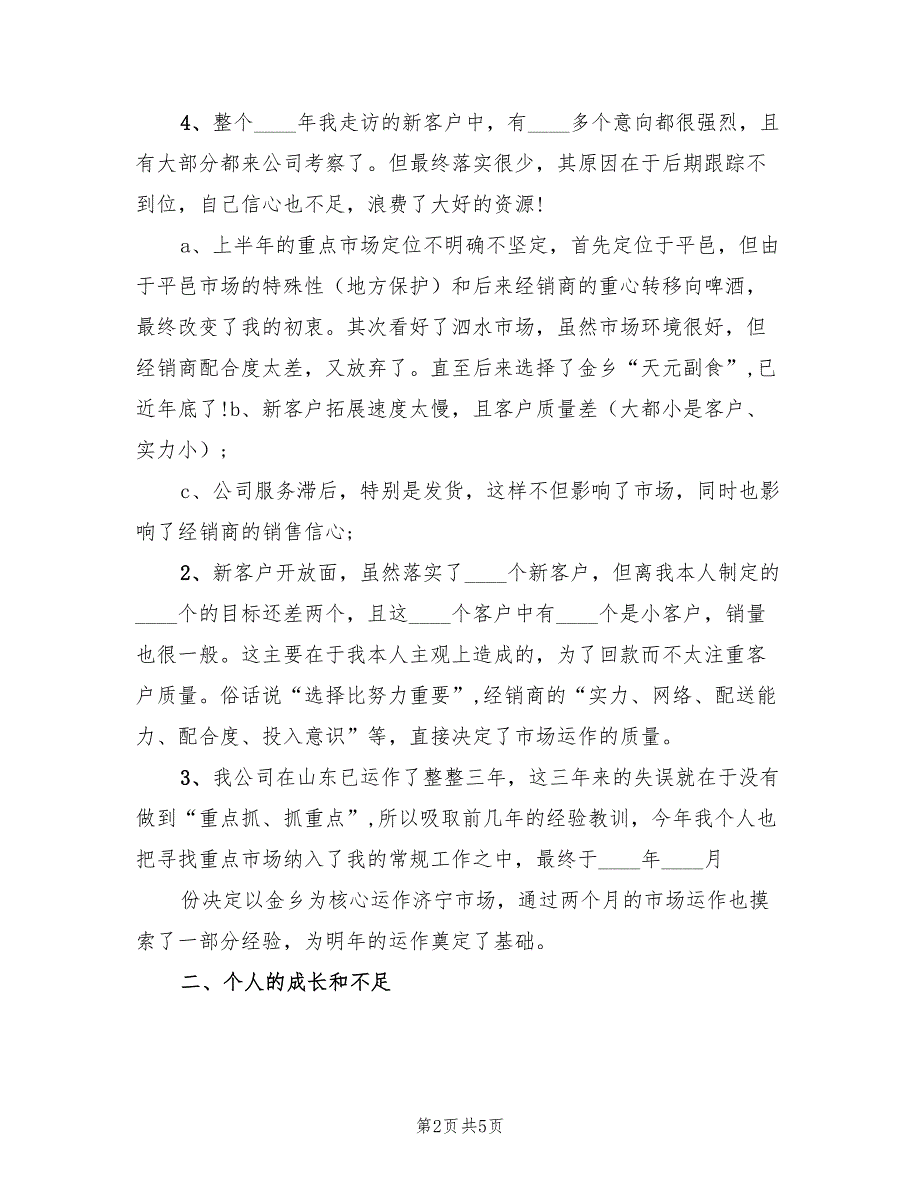 4、整个____年我走访的新客户中，有____多个意向都很强烈，且
有大部分都来公司考察了。但最终落实很少，其原因在于后期跟踪不
到位，自己信心也不足，浪费了大好的资源!
a、上半年的重点市场定位不明确不坚定，首先定位于平邑，但由
于平邑市场的特殊性（地方保护）和后来经销商的重心转移向啤酒，
最终改变了我的初衷。其次看好了泗水市场，虽然市场环境很好，但
经销商配合度太差，又放弃了。直至后来选择了金乡“天元副食”,已
近年底了!b、新客户拓展速度太慢，且客户质量差（大都小是客户、
实力小）;
c、公司服务滞后，特别是发货，这样不但影响了市场，同时也影
响了经销商的销售信心;
2、新客户开放面，虽然落实了____个新客户，但离我本人制定的
____个的目标还差两个，且这____个客户中有____个是小客户，销量
也很一般。这主要在于我本人主观上造成的，为了回款而不太注重客
户质量。俗话说“选择比努力重要”,经销商的“实力、网络、配送能
力、配合度、投入意识”等，直接决定了市场运作的质量。
3、我公司在山东已运作了整整三年，这三年来的失误就在于没有
做到“重点抓、抓重点”,所以吸取前几年的经验教训，今年我个人也
把寻找重点市场纳入了我的常规工作之中，最终于____年____月
份决定以金乡为核心运作济宁市场，通过两个月的市场运作也摸
索了一部分经验，为明年的运作奠定了基础。
二、个人的成长和不足
第2页共5页